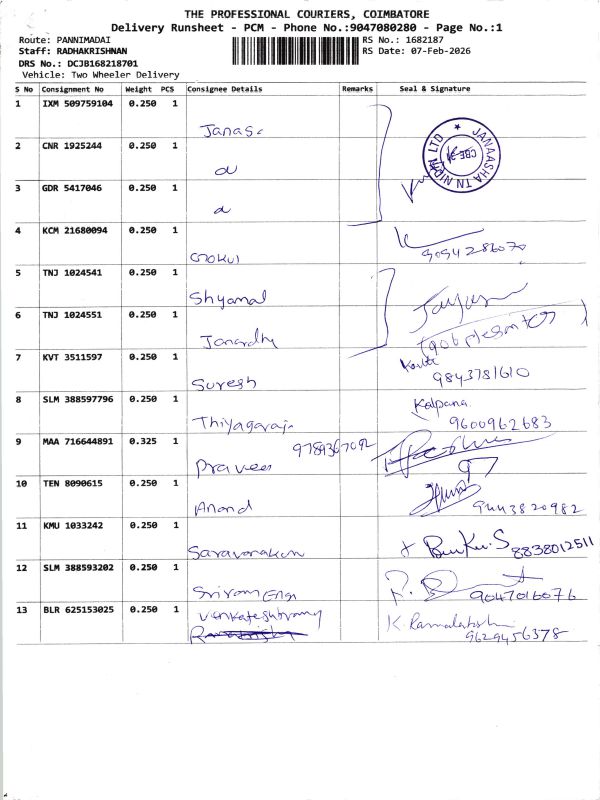 THE PROFESSIONAL COURIERS, COIMBATORE
Delivery Runsheet - PCM - Phone No.:9047080280 - Page No.:1
Route: PANNIMADAI RS No.: 1682187
Staff: RADHAKRISHNAN RS Date: 07-Feb-2026
DRS No.: DCJB168218701
Vehicle: Two Wheeler Delivery
S No Consignment No Weight PCS Consignee Details Remarks Seal & Signature
1 IXM 509759104 0.250 1
JANAASHA TN NIDHI LTD
CBE
2 CNR 1925244 0.250 1
3 GDR 5417046 0.250 1
4 KCM 21680094 0.250 1
Gokul
5 TNJ 1024541 0.250 1
Shyamal
6 TNJ 1024551 0.250 1
7 KVT 3511597 0.250 1
Suresh 9843781610
8 SLM 388597796 0.250 1 Kalpana
Thiyagaraj 9600962683
9 MAA 716644891 0.325 1
Praveen 9789367092
10 TEN 8090615 0.250 1
Anand 9443820982
11 KMU 1033242 0.250 1
8838012511
12 SLM 388593202 0.250 1
Sriram Eng 9047016076
13 BLR 625153025 0.250 1
K. Ramalakshmi
9629456378